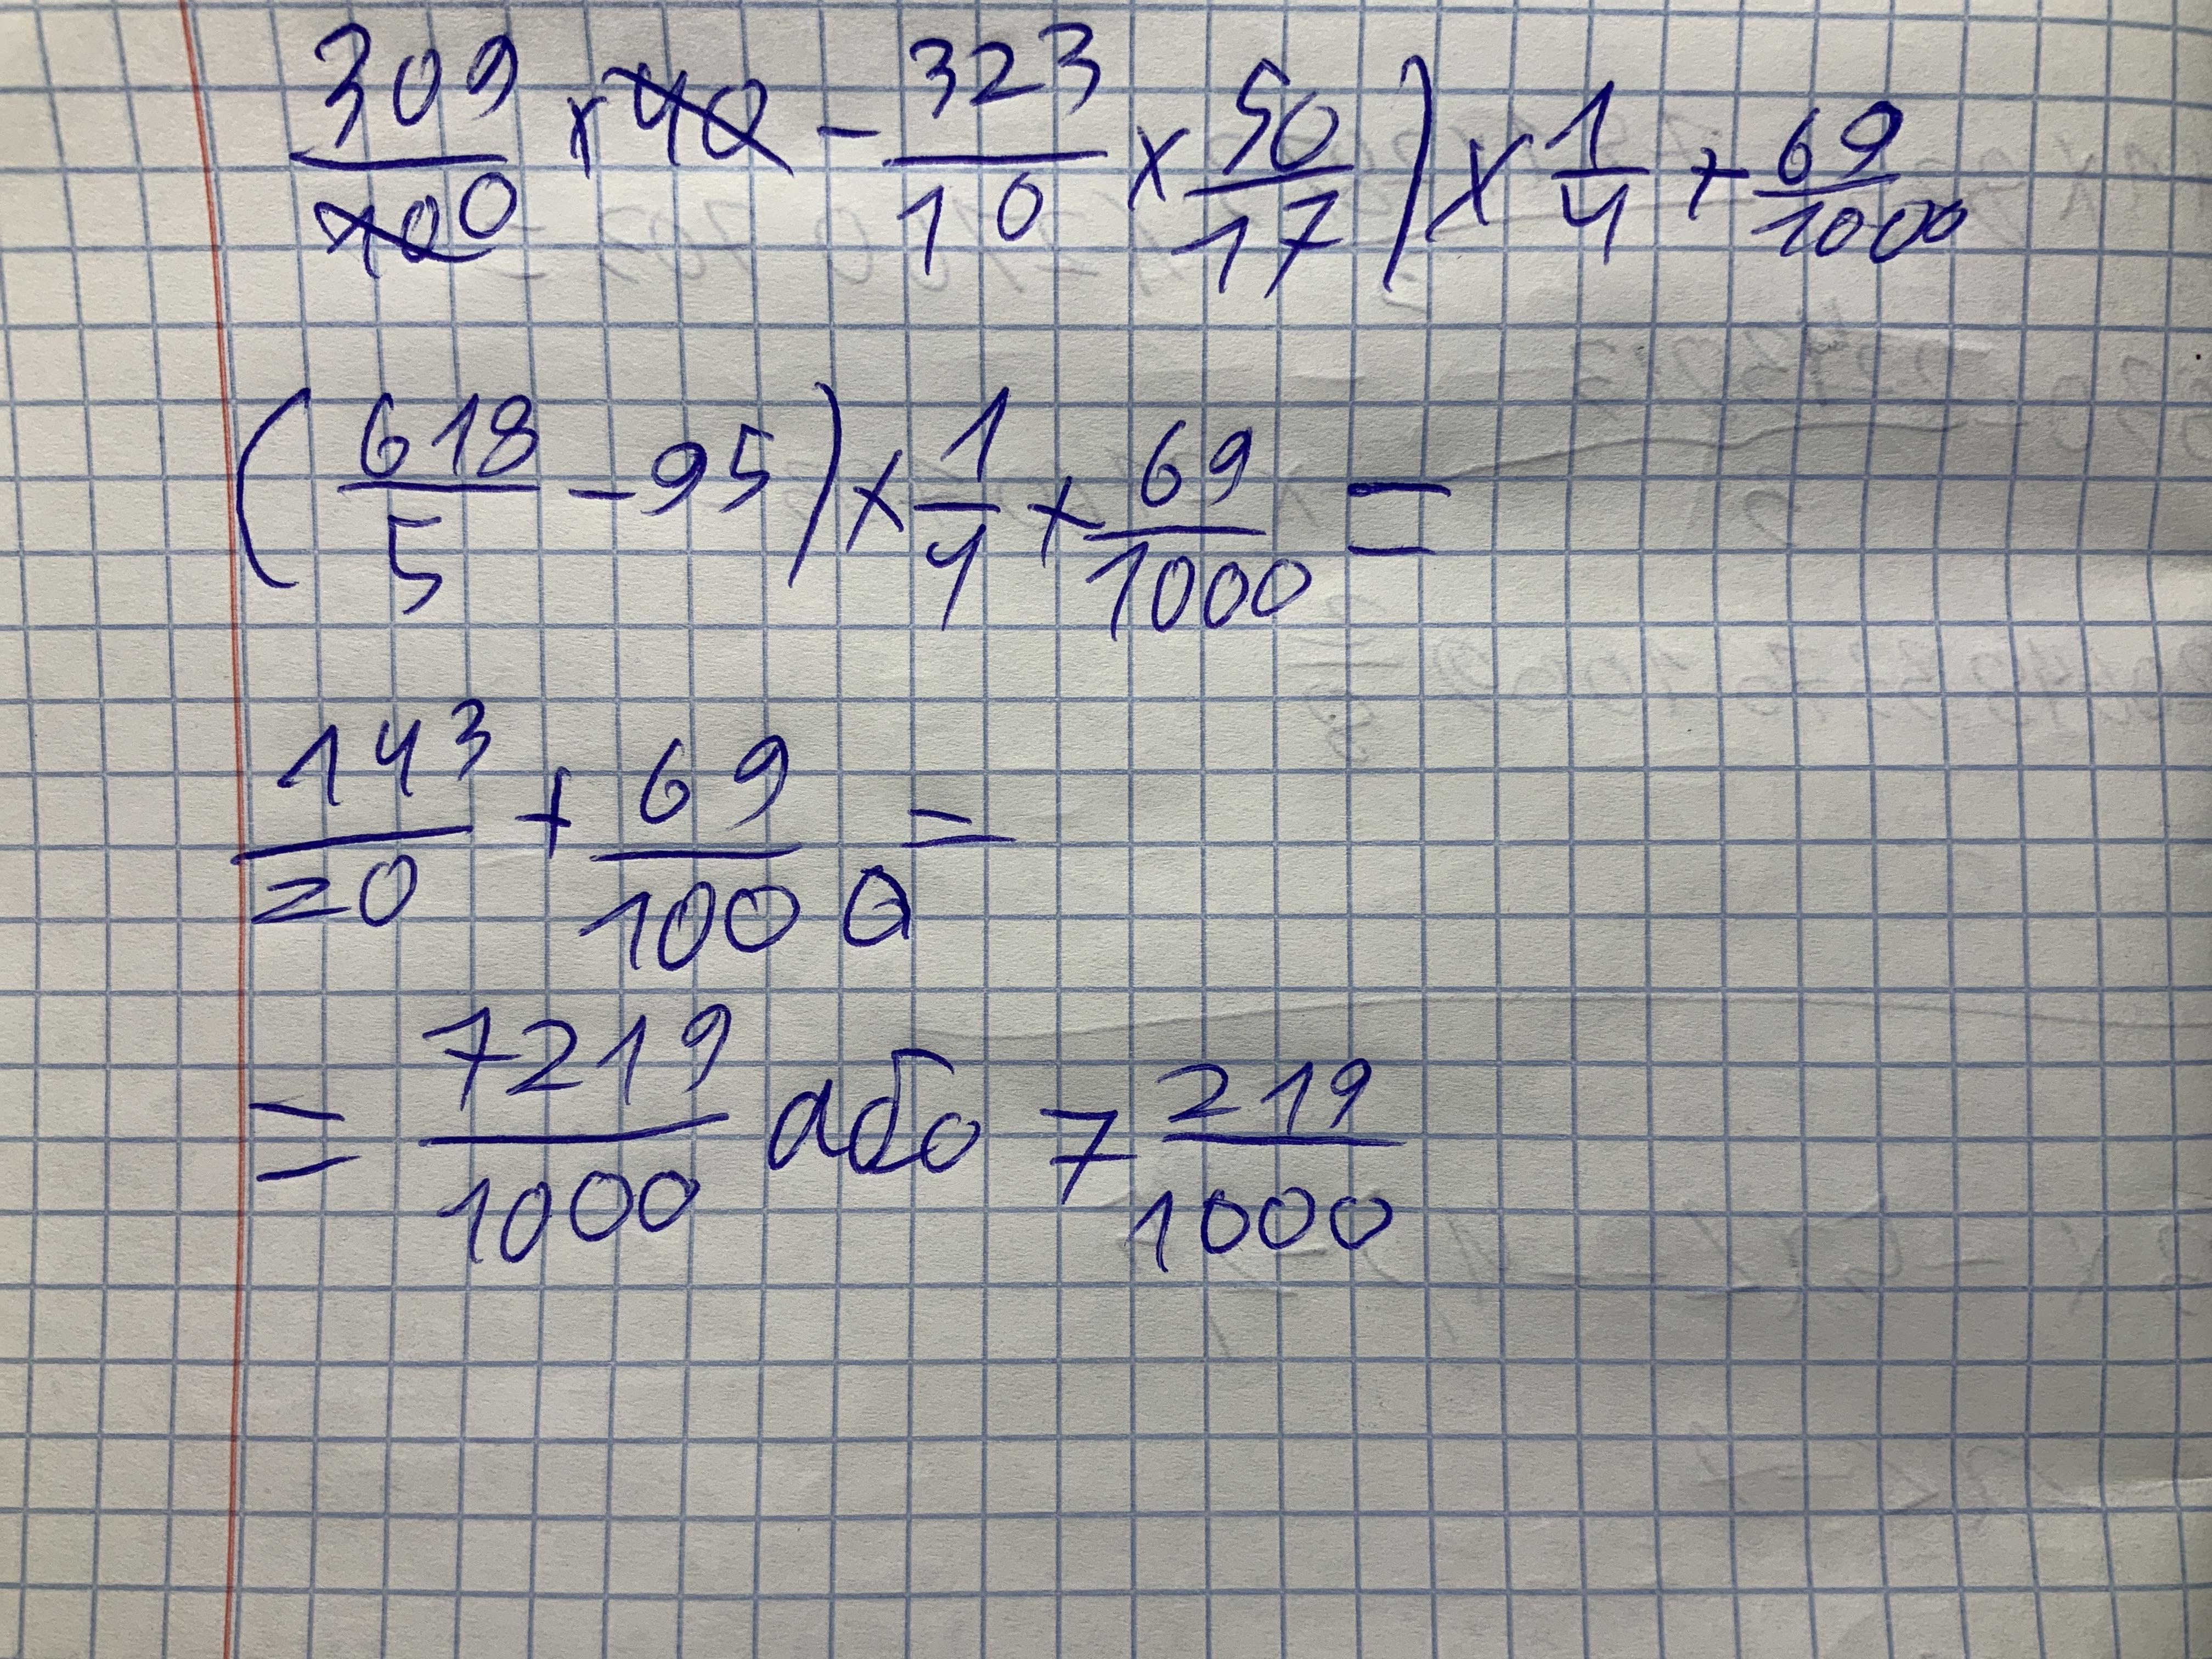 309/100 × 40 - 323/10 × 50/17) × 1/4 + 69/1000
(618/5 - 95) × 1/4 + 69/1000 =
143/20 + 69/1000 =
= 7219/1000 або 7 219/1000